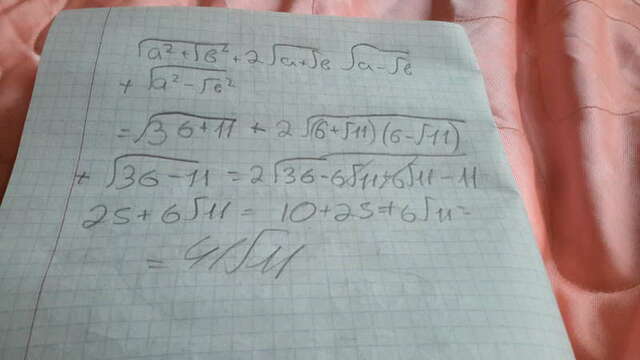 √a²+√в² + 2√a+√в √a-√в
+ √a²-√в²
= √36+11 + 2√(6+√11)(6-√11)
+ √36-11 = 2√36-6√11+6√11-11
25+6√11 = 10+25+6√11=
= 41√11